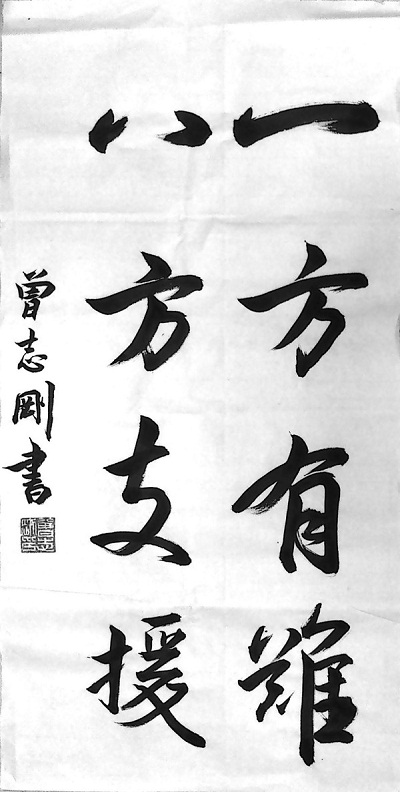 一方有難
八方支援
曾志剛書